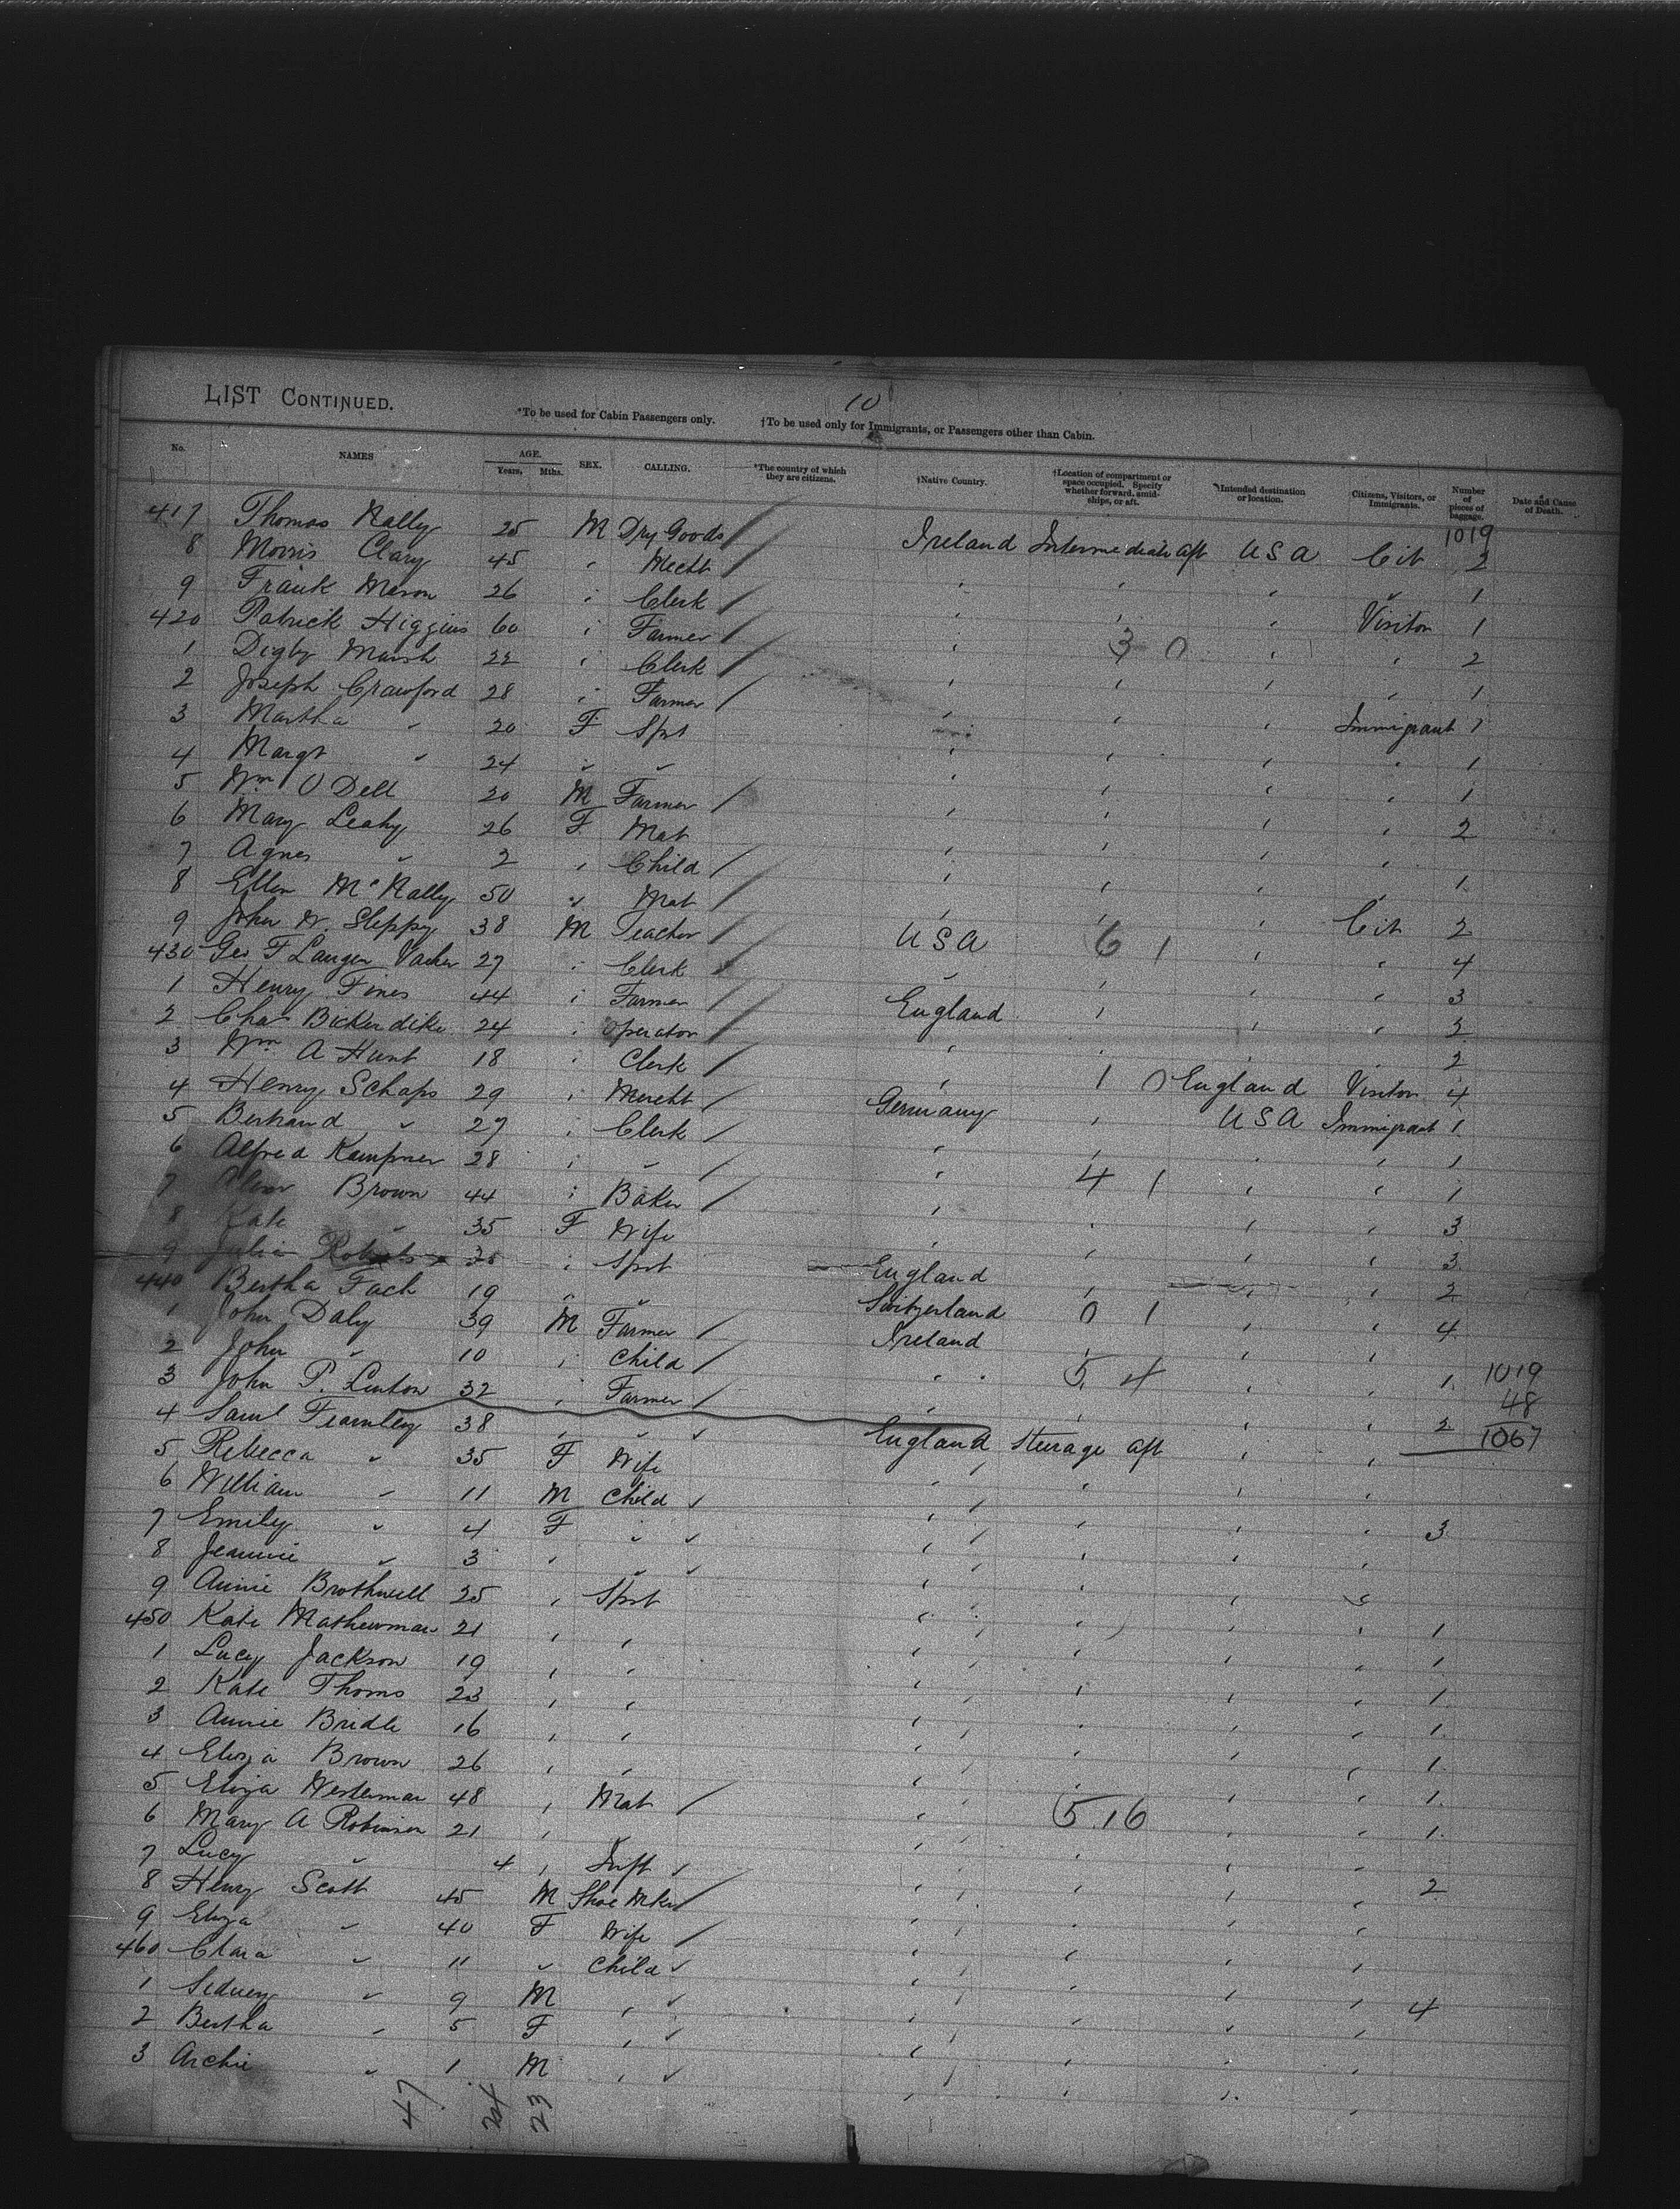 10
LIST CONTINUED.
*To be used for Cabin Passengers only. †To be used only for Immigrants, or Passengers other than Cabin.
No. NAMES AGE. Years, Mths. SEX. CALLING. *The country of which they are citizens. †Native Country. †Location of compartment or space occupied. Specify whether forward, amidships, or aft. *Intended destination or location. Citizens, Visitors, or Immigrants. Number of pieces of baggage. Date and Cause of Death.
1019
417 Thomas Nally 25 M Dry Goods Ireland Intermediate aft USA Cit 2
8 Morris Clary 45 " Mecht " " " " 1
9 Frank Mason 26 " Clerk " " " Visitor 1
420 Patrick Higgins 60 " Farmer " 3 0 " " 2
1 Digby Marsh 22 " Clerk " " " " 1
2 Joseph Crawford 28 " Farmer " " " Immigrant 1
3 Martha " 20 F Spst " " " " 1
4 Margt " 24 " " " " " " 1
5 Wm O Dell 20 M Farmer " " " " 2
6 Mary Leahy 26 F Mat " " " "
7 Agnes " 2 " Child " " " " 1
8 Ellen McNally 50 " Mat " " " Cit 2
9 John W. Sleppy 38 M Teacher USA 6 1 " " 4
430 Geo F Langer 27 " Clerk " " " " 3
1 Henry Fines 44 " Farmer England " " " 2
2 Chas Bickerdike 24 " Operator " " " " 2
3 Wm A Hunt 18 " Clerk " 1 0 England Visitor 4
4 Henry Schaps 29 " Mercht Germany " USA Immigrant 1
5 Bertrand " 27 " Clerk " " " " 1
6 Alfred Kampner 28 " " " 4 1 " " 1
7 Brown 44 " Baker " " " " 3
8 Kate " 35 F Wife " " " " 3
9 Julia Roberts 35 " Spst England " " " 2
440 Bertha Fach 19 " " Switzerland 0 1 " " 4
1 John Daly 39 M Farmer Ireland " " "
2 John " 10 " Child " 5 4 " " 1 1019
3 John P. Linton 32 " Farmer " " " " 2 48
1067
4 Saml Fearnley 38 " " England Steerage aft " "
5 Rebecca " 35 F Wife " " " "
6 William " 11 M Child " " " " 3
7 Emily " 4 F " " " " "
8 Jeannie " 3 " " " " " "
9 Annie Brothwell 25 " Spst " " " " 1
450 Kate Mathewman 21 " " " " " " 1
1 Lucy Jackson 19 " " " " " " 1
2 Kate Thoms 23 " " " " " " 1
3 Annie Bridle 16 " " " " " " 1
4 Eliza Brown 26 " " " " " " 1
5 Eliza Westerman 48 " Mat " 5 16 " " 1
6 Mary A Robinson 21 " " " " "
7 Lucy " 4 " Inft " " " " 2
8 Henry Scott 45 M Shoe Mkr " " " "
9 Eliza " 40 F Wife " " " "
460 Clara " 11 " Child " " " "
1 Sidney " 9 M " " " " " 4
2 Bertha " 5 F " " " " "
3 Archie " 1 M " " " " "
47 24 23